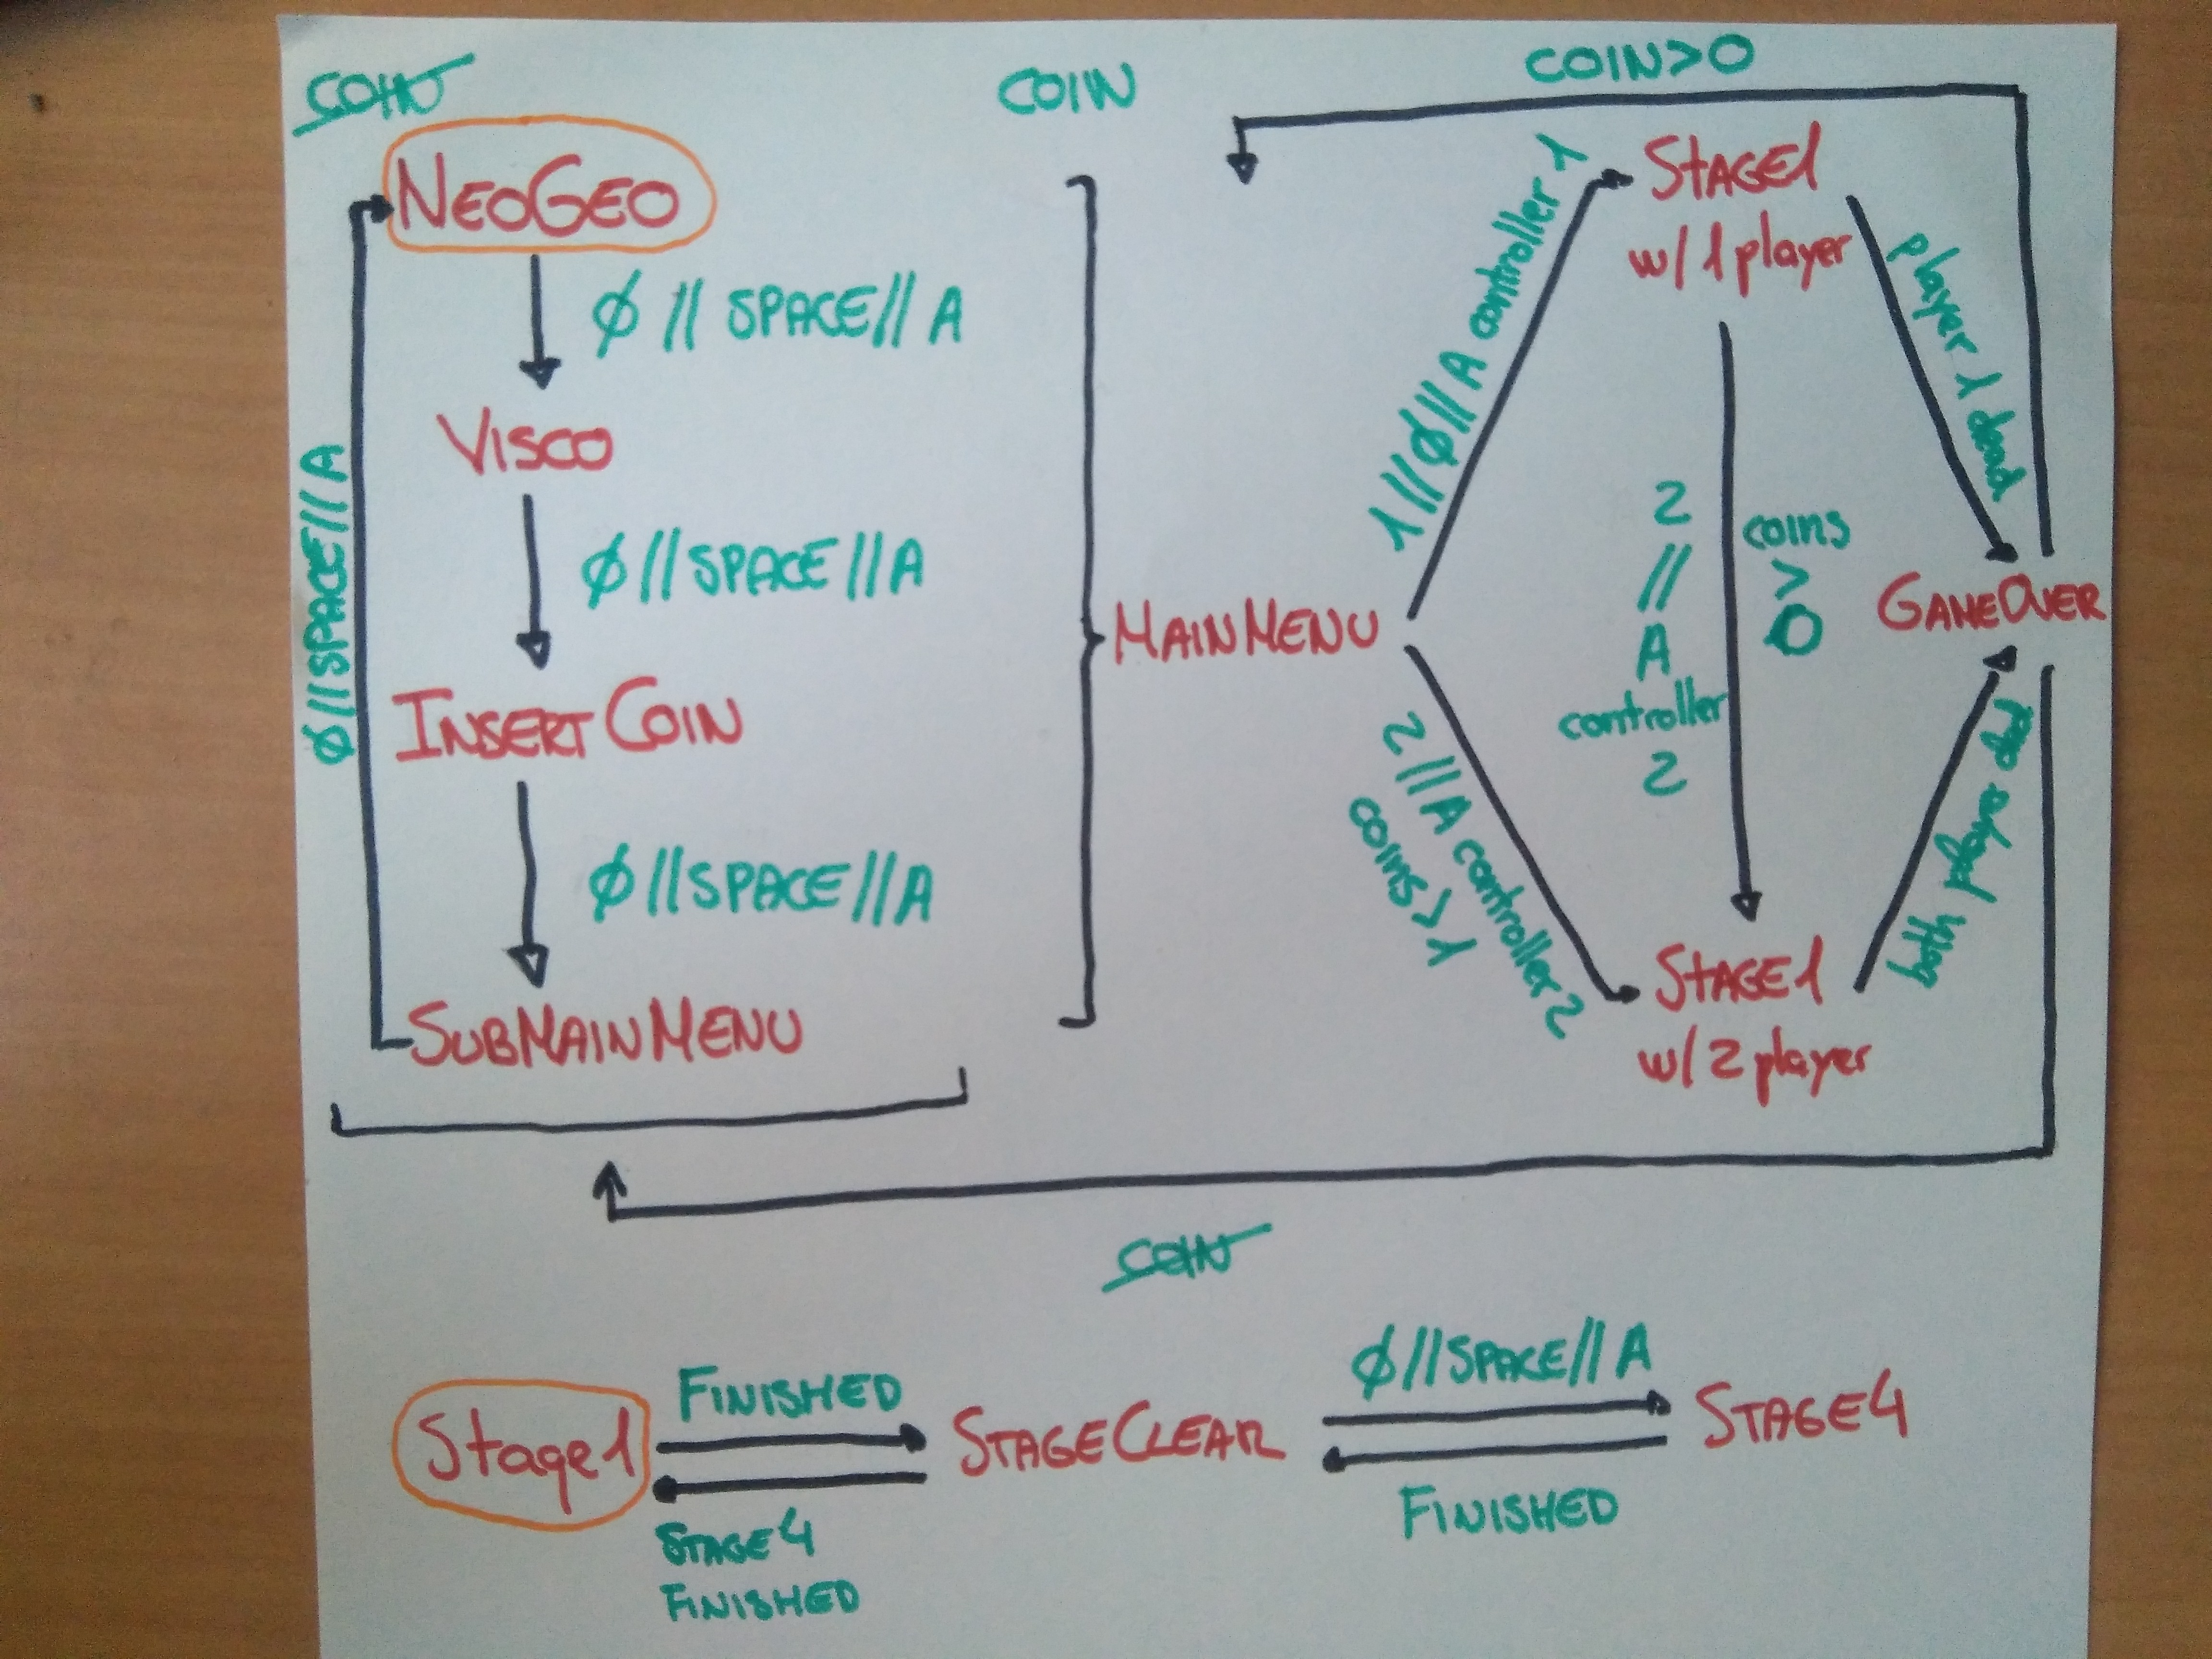 COIN
COIN
COIN>0
NEOGEO
Ø // SPACE // A
VISCO
Ø // SPACE // A
INSERT COIN
Ø // SPACE // A
SUBMAINMENU
Ø // SPACE // A
MAINMENU
1 // Ø // A controller 1
STAGE1
w/ 1 player
player 1 dead
2
//
A
controller
2
coins
>
0
GAMEOVER
2 // A controller 2
coins > 1
STAGE1
w/ 2 player
both players
COIN
Stage1
FINISHED
STAGE4
FINISHED
STAGECLEAR
Ø // SPACE // A
FINISHED
STAGE4